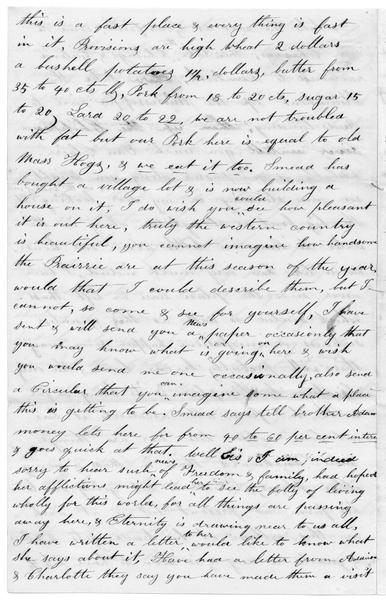 this is a fast place & every thing is fast
in it, Provisions are high wheat 2 dollars
a bushell, potatoes 1 1/2, dollars, butter from
35 to 40 cts lb, Pork from 18 to 20 cts, sugar 15
to 20, Lard 20 to 22, we are not troubled
with fat but our Pork here is equal to old
Mass Hogs, & we eat it too. Smead has
bought a village lot & is now building a
house on it, I do wish you could see how pleasant
it is out here, truly the western country
is beautiful, you cannot imagine how handsome
the Prairrie are at this season of the year,
would that I could describe them, but I
cannot, so come & see for yourself, I have
sent & will send you a News paper occasionly that
you may know what is going on here & wish
you would send me one occasionally, also send
a Circular that you can imagine some what a place
this is getting to be. Smead says tell brother
money lets here for from 40 to 60 per cent interes
& goes quick at that. Well Sis I am indeed
sorry to hear such news of Freedom & family, had hoped
her afflictions might lead her to see the folly of living
wholly for this world, for all things are passing
away here, & Eternity is drawing near to us all,
I have written a letter to her would like to know what
she says about it, Have had a letter from
& Charlotte they say you have made them a visit